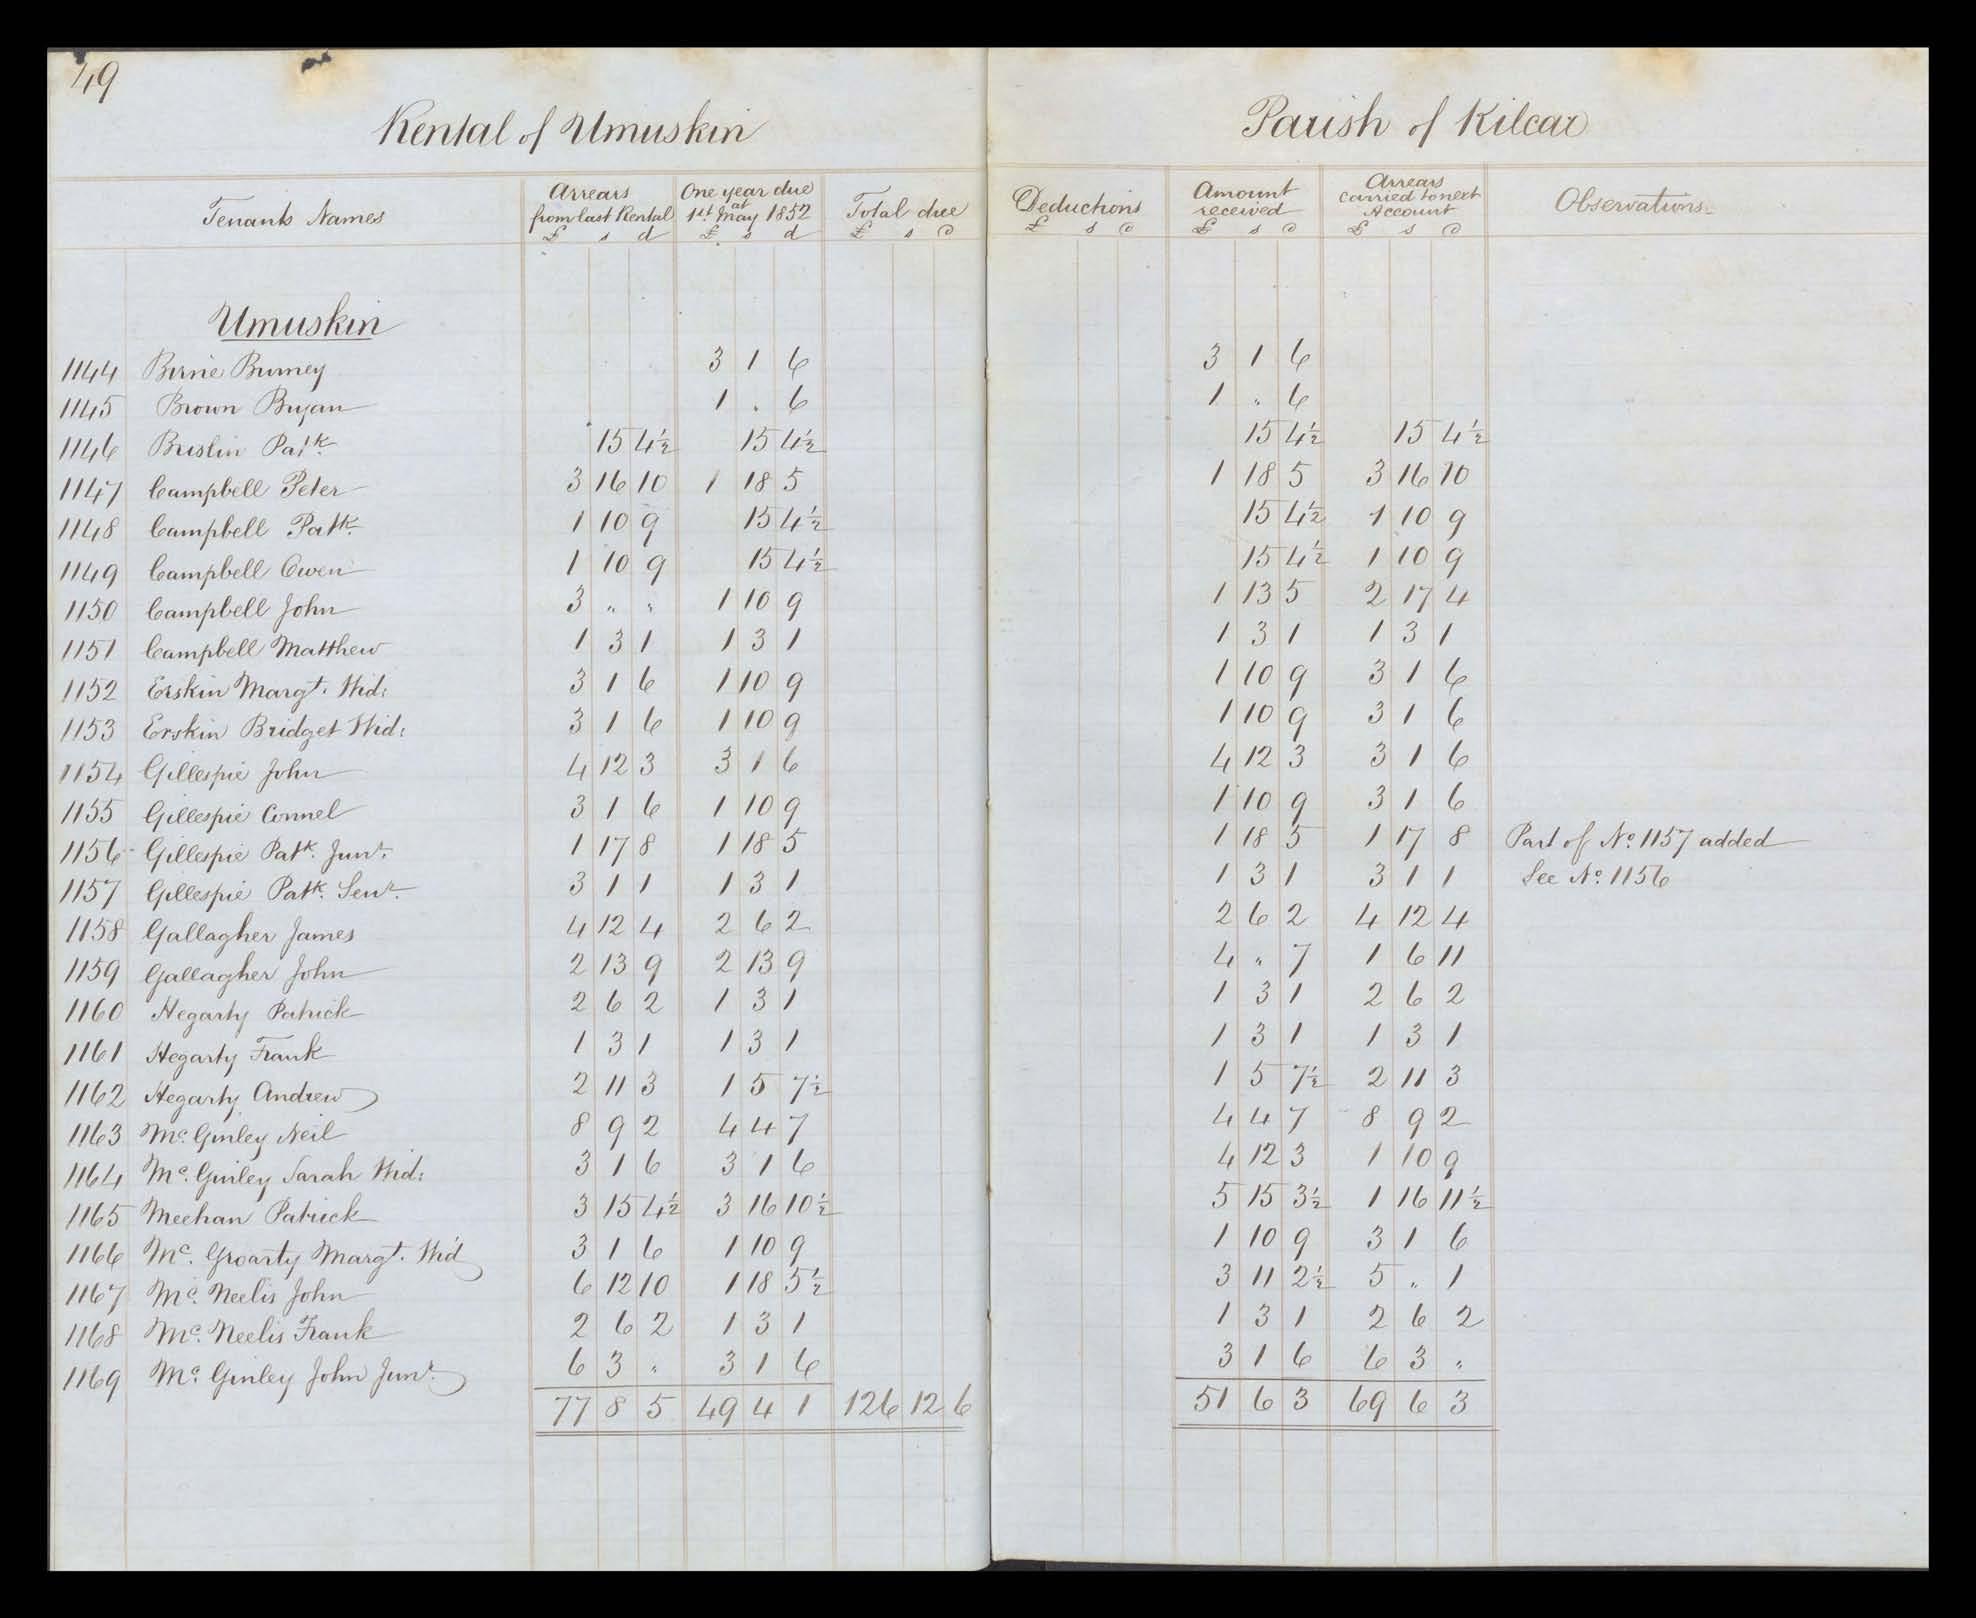 49
Rental of Umuskin
Parish of Kilcar
Tenants Names | Arrears from last Rental £ s d | One year due at 1st May 1852 £ s d | Total due £ s d | Deductions £ s d | Amount received £ s d | Arrears carried to next Account £ s d | Observations
Umuskin
1144 Birne Burney | | 3 1 6 | | | 3 1 6
1145 Brown Bryan | | 1 " 6 | | | 1 " 6
1146 Brislin Patk. | 15 4½ | 15 4½ | | | 15 4½ | 15 4½
1147 Campbell Peter | 3 16 10 | 1 18 5 | | | 1 18 5 | 3 16 10
1148 Campbell Patk. | 1 10 9 | 15 4½ | | | 15 4½ | 1 10 9
1149 Campbell Owen | 1 10 9 | 15 4½ | | | 15 4½ | 1 10 9
1150 Campbell John | 3 " " | 1 10 9 | | | 1 13 5 | 2 17 4
1151 Campbell Matthew | 1 3 1 | 1 3 1 | | | 1 3 1 | 1 3 1
1152 Erskin Margt. Wid: | 3 1 6 | 1 10 9 | | | 1 10 9 | 3 1 6
1153 Erskin Bridget Wid: | 3 1 6 | 1 10 9 | | | 1 10 9 | 3 1 6
1154 Gillespie John | 4 12 3 | 3 1 6 | | | 4 12 3 | 3 1 6
1155 Gillespie Connel | 3 1 6 | 1 10 9 | | | 1 10 9 | 3 1 6
1156 Gillespie Patk. Junr. | 1 17 8 | 1 18 5 | | | 1 18 5 | 1 17 8 | Part of No. 1157 added
1157 Gillespie Patk. Senr. | 3 1 1 | 1 3 1 | | | 1 3 1 | 3 1 1 | See No. 1156
1158 Gallagher James | 4 12 4 | 2 6 2 | | | 2 6 2 | 4 12 4
1159 Gallagher John | 2 13 9 | 2 13 9 | | | 4 " 7 | 1 6 11
1160 Hegarty Patrick | 2 6 2 | 1 3 1 | | | 1 3 1 | 2 6 2
1161 Hegarty Frank | 1 3 1 | 1 3 1 | | | 1 3 1 | 1 3 1
1162 Hegarty Andrew | 2 11 3 | 1 5 7½ | | | 1 5 7½ | 2 11 3
1163 Mc. Ginley Neil | 8 9 2 | 4 4 7 | | | 4 4 7 | 8 9 2
1164 Mc. Ginley Sarah Wid: | 3 1 6 | 3 1 6 | | | 4 12 3 | 1 10 9
1165 Meehan Patrick | 3 15 4½ | 3 16 10½ | | | 5 15 3½ | 1 16 11½
1166 Mc. Groarty Margt. Wid | 3 1 6 | 1 10 9 | | | 1 10 9 | 3 1 6
1167 Mc. Neelis John | 6 12 10 | 1 18 5½ | | | 3 11 2½ | 5 " 1
1168 Mc. Neelis Frank | 2 6 2 | 1 3 1 | | | 1 3 1 | 2 6 2
1169 Mc. Ginley John Junr. | 6 3 " | 3 1 6 | | | 3 1 6 | 6 3 "
77 8 5 | 49 4 1 | 126 12 6 | | 51 6 3 | 69 6 3